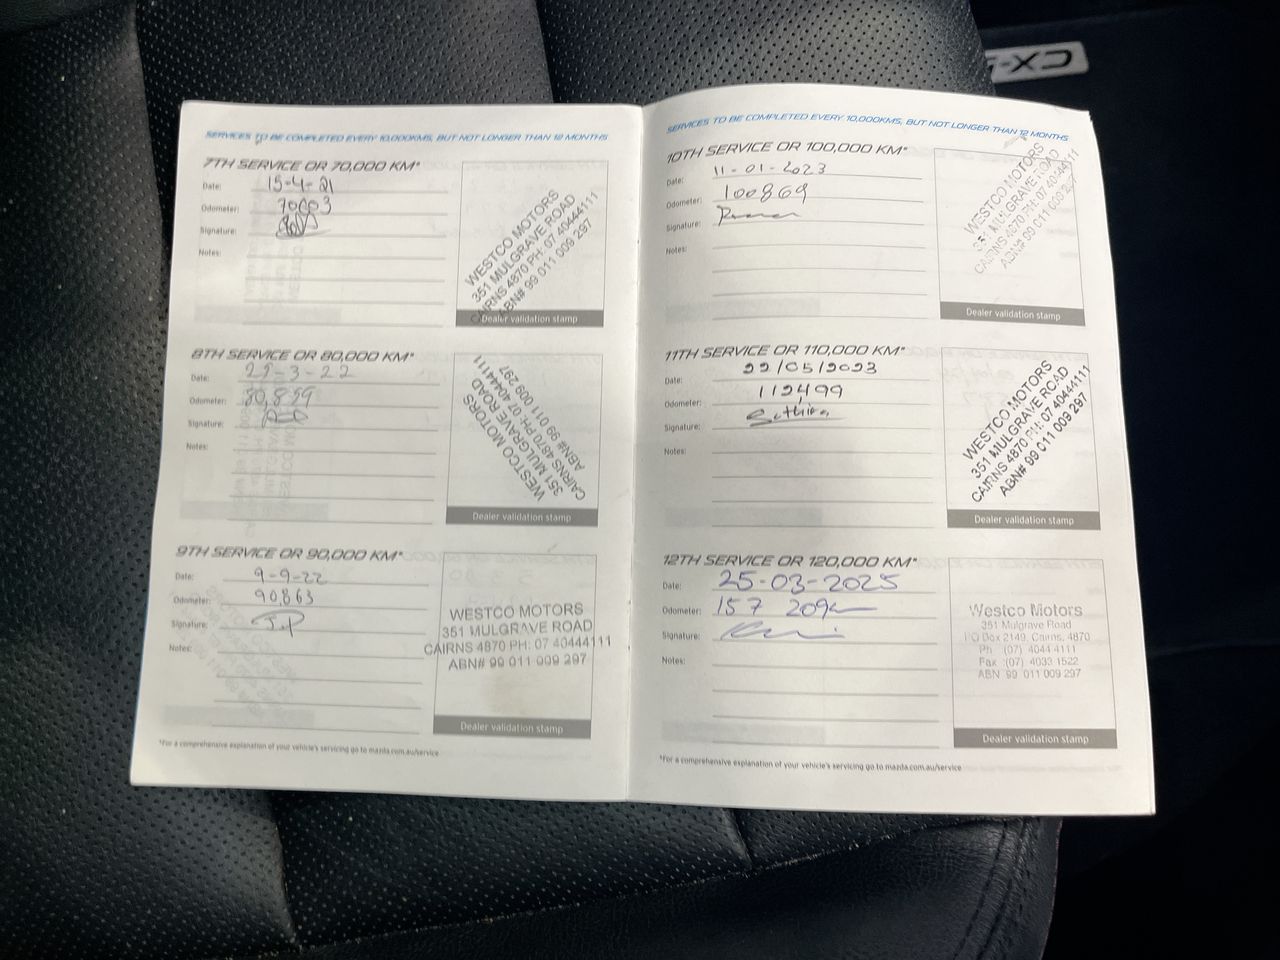 CX-5
SERVICES TO BE COMPLETED EVERY 10,000KMS, BUT NOT LONGER THAN 12 MONTHS
7TH SERVICE OR 70,000 KM*
Date: 15-4-21
Odometer: 70003
Signature:
Notes:
WESTCO MOTORS
351 MULGRAVE ROAD
CAIRNS 4870 PH: 07 40444111
ABN# 99 011 009 297
Dealer validation stamp
8TH SERVICE OR 80,000 KM*
Date: 29-3-22
Odometer: 80,899
Signature:
Notes:
WESTCO MOTORS
351 MULGRAVE ROAD
CAIRNS 4870 PH: 07 40444111
ABN# 99 011 009 297
Dealer validation stamp
9TH SERVICE OR 90,000 KM*
Date: 9-9-22
Odometer: 90,863
Signature:
Notes:
WESTCO MOTORS
351 MULGRAVE ROAD
CAIRNS 4870 PH: 07 40444111
ABN# 99 011 009 297
Dealer validation stamp
*For a comprehensive explanation of your vehicle's servicing go to mazda.com.au/service
SERVICES TO BE COMPLETED EVERY 10,000KMS, BUT NOT LONGER THAN 12 MONTHS
10TH SERVICE OR 100,000 KM*
Date: 11-01-2023
Odometer: 100869
Signature:
Notes:
WESTCO MOTORS
351 MULGRAVE ROAD
CAIRNS 4870 PH: 07 40444111
ABN# 99 011 009 297
Dealer validation stamp
11TH SERVICE OR 110,000 KM*
Date: 22/05/2023
Odometer: 112,499
Signature:
Notes:
WESTCO MOTORS
351 MULGRAVE ROAD
CAIRNS 4870 PH: 07 40444111
ABN# 99 011 009 297
Dealer validation stamp
12TH SERVICE OR 120,000 KM*
Date: 25-03-2025
Odometer: 157 209
Signature:
Notes:
Westco Motors
351 Mulgrave Road
PO Box 2149, Cairns, 4870
Ph (07) 4044 4111
Fax (07) 4033 1522
ABN 99 011 009 297
Dealer validation stamp
*For a comprehensive explanation of your vehicle's servicing go to mazda.com.au/service